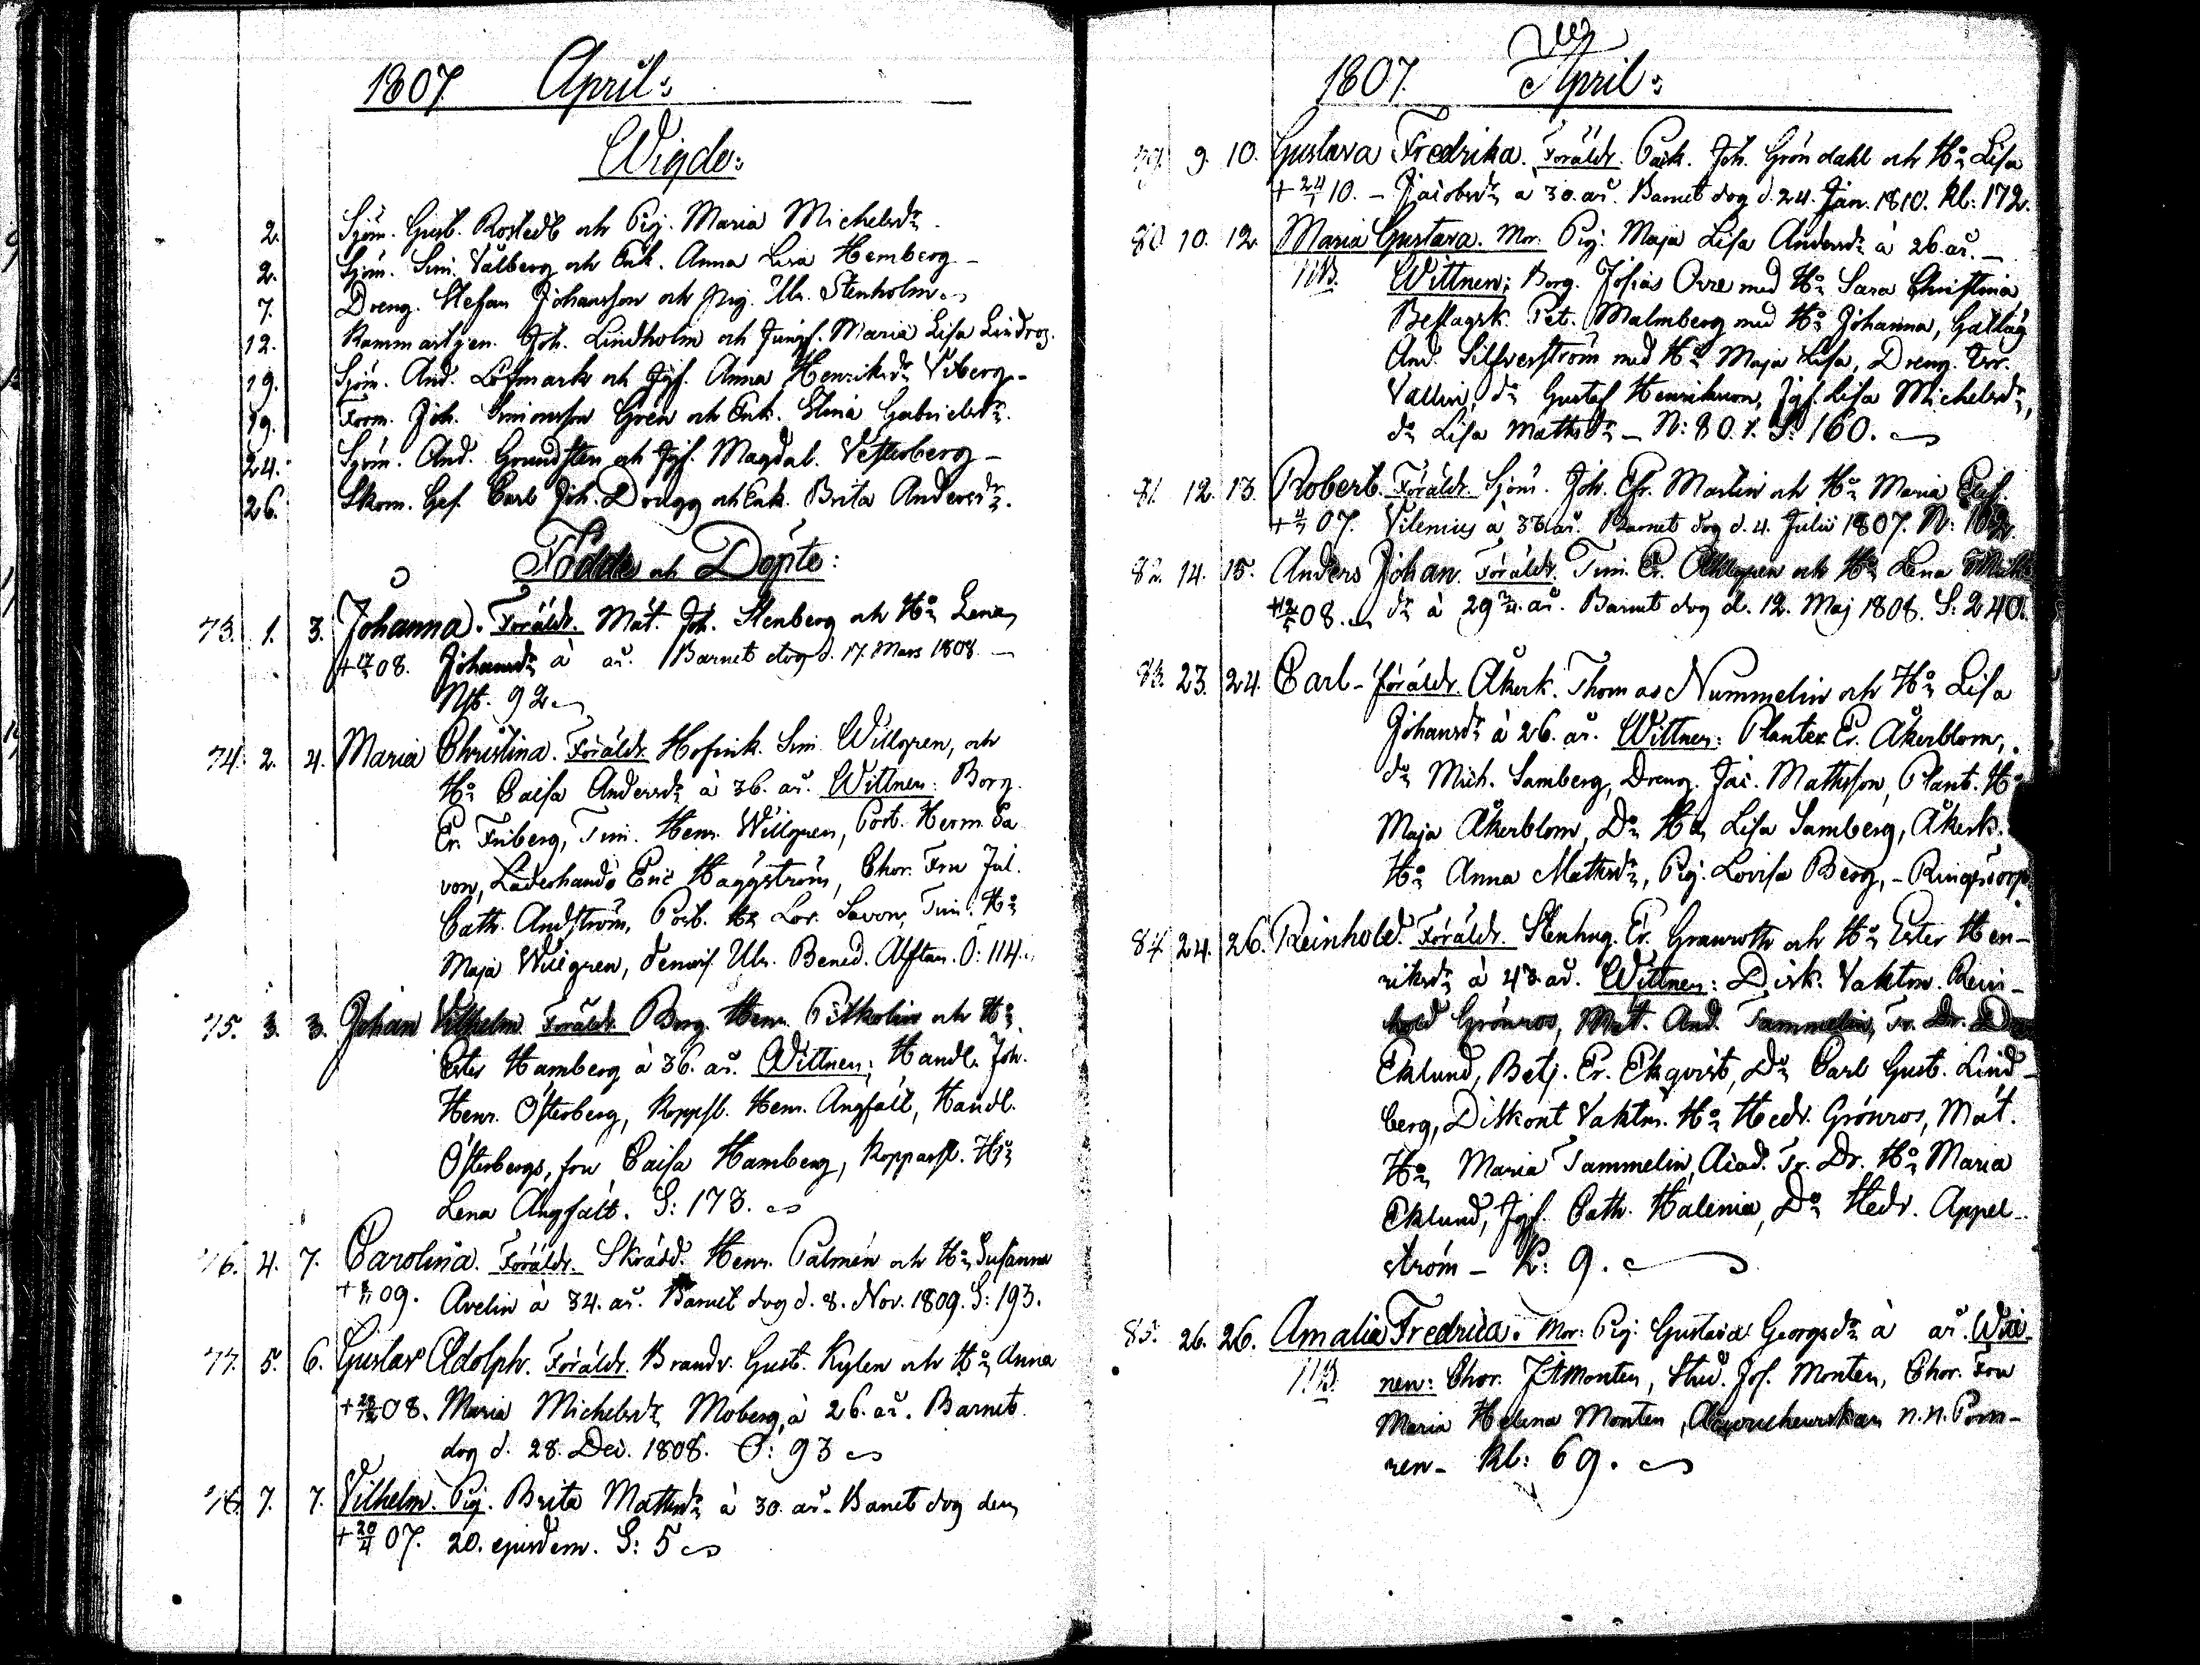 1807. April:
Wigde:
2. Sjöm. Gust. Rostedt och Pig. Maria Michelsdr.
2. Sjöm. Sim. Valberg och Enk. Anna Lisa Hemberg –
7. Dreng. Stefan Johansson och Pig. Ulr. Stenholm
12. Kammartjen. Joh. Lindholm och Jungf. Maria Lisa Lindros.
19. Sjöm. And. Löfmark och Jgf. Anna Henriksdr Viberg –
19. Form. Joh. Simonsson Gren och Enk. Stina Gabrielsdr.
24. Sjöm. And. Grundsten och Jgf. Magdal. Vesterberg –
26. Skom. Ges. Carl Joh. Drugg och Enk. Brita Andersdr.
Födde och Döpte:
73. 1. 3. Johanna. Föräldr. Mat. Joh. Stenberg och Hu Lena
+ 17/3 08. Johansdr à år. Barnet dog d. 17. Mars 1808. –
Nst. 92
74. 2. 4. Maria Christina. Föräldr. Sim. Willgren, och
Hu Caisa Andersdr à 36. år. Wittnen: Borg.
Er. Friberg, Tim. Henr. Willgren, Post. Herm. Sa
von, Läderhand. Eric Häggström, Chor. Fru Jul.
Cath. Andström, Post. Hu Lov. Savon, Tim. Hu
Maja Willgren, demois. Ulr. Bened. Alftan. Ö: 114.
75. 3. 3. Johan Vilhelm. Föräldr. Borg. Henr. Pitkolin och Hu
Ester Hamberg à 36. år. Wittnen: Handl. Joh.
Henr. Österberg, Koppsl. Henr. Angfält, Handl.
Österbergs, fru Caisa Hamberg, Kopparsl. Hu
Lena Angfält. S: 173.
76. 4. 7. Carolina. Föräldr. Skrädd. Henr. Palmén och Hu Susanna
+ 8/11 09. Avelin à 34. år. Barnet dog d. 8. Nov. 1809. S: 193.
77. 5. 6. Gustav Adolph. Föräldr. Brandv. Gust. Kylen och Hu Anna
+ 28/12 08. Maria Michelsdr Moberg, à 26. år. Barnet
dog d. 28. Dec. 1808. Ö: 93
78. 7. 7. Vilhelm. Pig. Brita Mathsdr à 30. år. Barnet dog den
+ 20/4 07. 20. ejusdem. S: 5
1807. April:
79. 9. 10. Gustava Fredrika. Föräldr. Joh. Gröndahl och Hu Lisa
+ 24/1 10. – Jacobsdr à 30. år. Barnet dog d. 24. Jan. 1810. Kl: 172.
80. 10. 12. Maria Gustava. Mor. Pig. Maja Lisa Andersdr à 26. år. –
Wittnen: Borg. Josias Orre med Hu Sara Christina
Beslagsk. Pet. Malmberg med Hu Johanna,
And. Silfverström med Hu Maja Lisa, Dreng.
Vallin, do Gustaf Henriksson, Jgf. Lisa Michelsdr,
do Lisa Mathsdr – N: 80. S: 160.
81. 12. 13. Robert. Föräldr. Sjöm. Joh. Chr. Martin och Hu Maria Elis.
+ 4/7 07. Vilenius à 36 år. Barnet dog d. 4. Julii 1807. N:
82. 14. 15. Anders Johan. Föräldr. Tim. Er. och Hu Lena
+ 12/5 08. dr à 29 3/4. år. Barnet dog d. 12. Maj 1808. S: 240.
83. 23. 24. Carl – föräldr. Åkerk. Thomas Nummelin och Hu Lisa
Johansdr à 26. år. Wittnen: Planter. Er. Åkerblom,
do Mich. Samberg, Dreng. Jac. Mathsson, Plant. Hu
Maja Åkerblom, Do Hu Lisa Samberg, Åkerk.
Hu Anna Mathsdr, Pig. Lovisa Berg, –
84. 24. 26. Reinhold. Föräldr. Stenhug. Er. Granroth och Hu Ester Hen–
riksdr à 43. år. Wittnen: Disk. Vaktm. Rein–
hold Grönros, Mat. And. Tammelin, Tr. Dr.
Eklund, Betj. Er. Ekqvist, Do Carl Gust. Lind–
berg, Diskont Vaktm. Hu Hedv. Grönros, Mat.
Hu Maria Tammelin, Acad. Tr. Dr. Hu Maria
Eklund, Jgf. Cath. Halenia, Do Hedv. Appel–
ström – K: 9.
85. 26. 26. Amalia Fredrica. Mor: Pig. Gustava Georgsdr à år. Witt–
nen: Chor. Monten, Stud. Jos. Monten, Chor. Fru
Maria Helena Monten, n.n. Pom–
ren – Kl: 69.